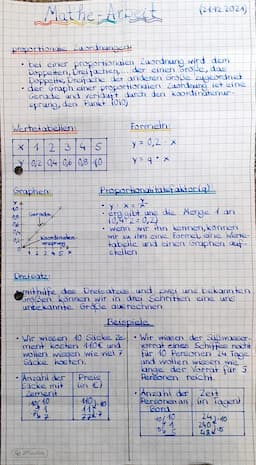 Mathe-Arbeit (21.12.2021)
proportionale Zuordnungen:
• bei einer proportionalen Zuordnung wird dem
Doppelten, Dreifachen,... der einen Größe, das
Doppelte, Dreifache der anderen Größe zugeordnet
• der Graph einer proportionalen Zuordnung ist eine
Gerade und verläuft durch den Koordinatenur-
sprung, den Punkt (0|0)
Wertetabellen: Formeln:
x 1 2 3 4 5 y = 0,2 · x
y 0,2 0,4 0,6 0,8 1,0 y = q · x
Graphen: Proportionalitätsfaktor(q)
• y : x =
Gerade • ergibt uns die Menge 1 an
• wenn wir ihn kennen, können
Koordinaten- wir zu ihm eine Formel, eine Werte-
ursprung tabelle und einen Graphen auf-
1 2 3 4 5 x stellen
Dreisatz:
mithilfe des Dreisatzes und zwei uns bekannten
Größen können wir in drei Schritten eine uns
unbekannte Größe ausrechnen
Beispiele
• Wir wissen 10 Säcke Ze- • Wir wissen der Süßwasser-
ment kosten 110€ und vorrat eines Schiffes reicht
wollen wissen wie viel 7 für 10 Personen 24 Tage
Säcke kosten. und wollen wissen wie
lange der Vorrat für 5
Personen reicht.
Anzahl der Preis
Säcke mit (in €)
Zement
10 110
1 11
7 77
Anzahl der Zeit
Personen an (in Tagen)
Bord
10 24
1 240
5 48